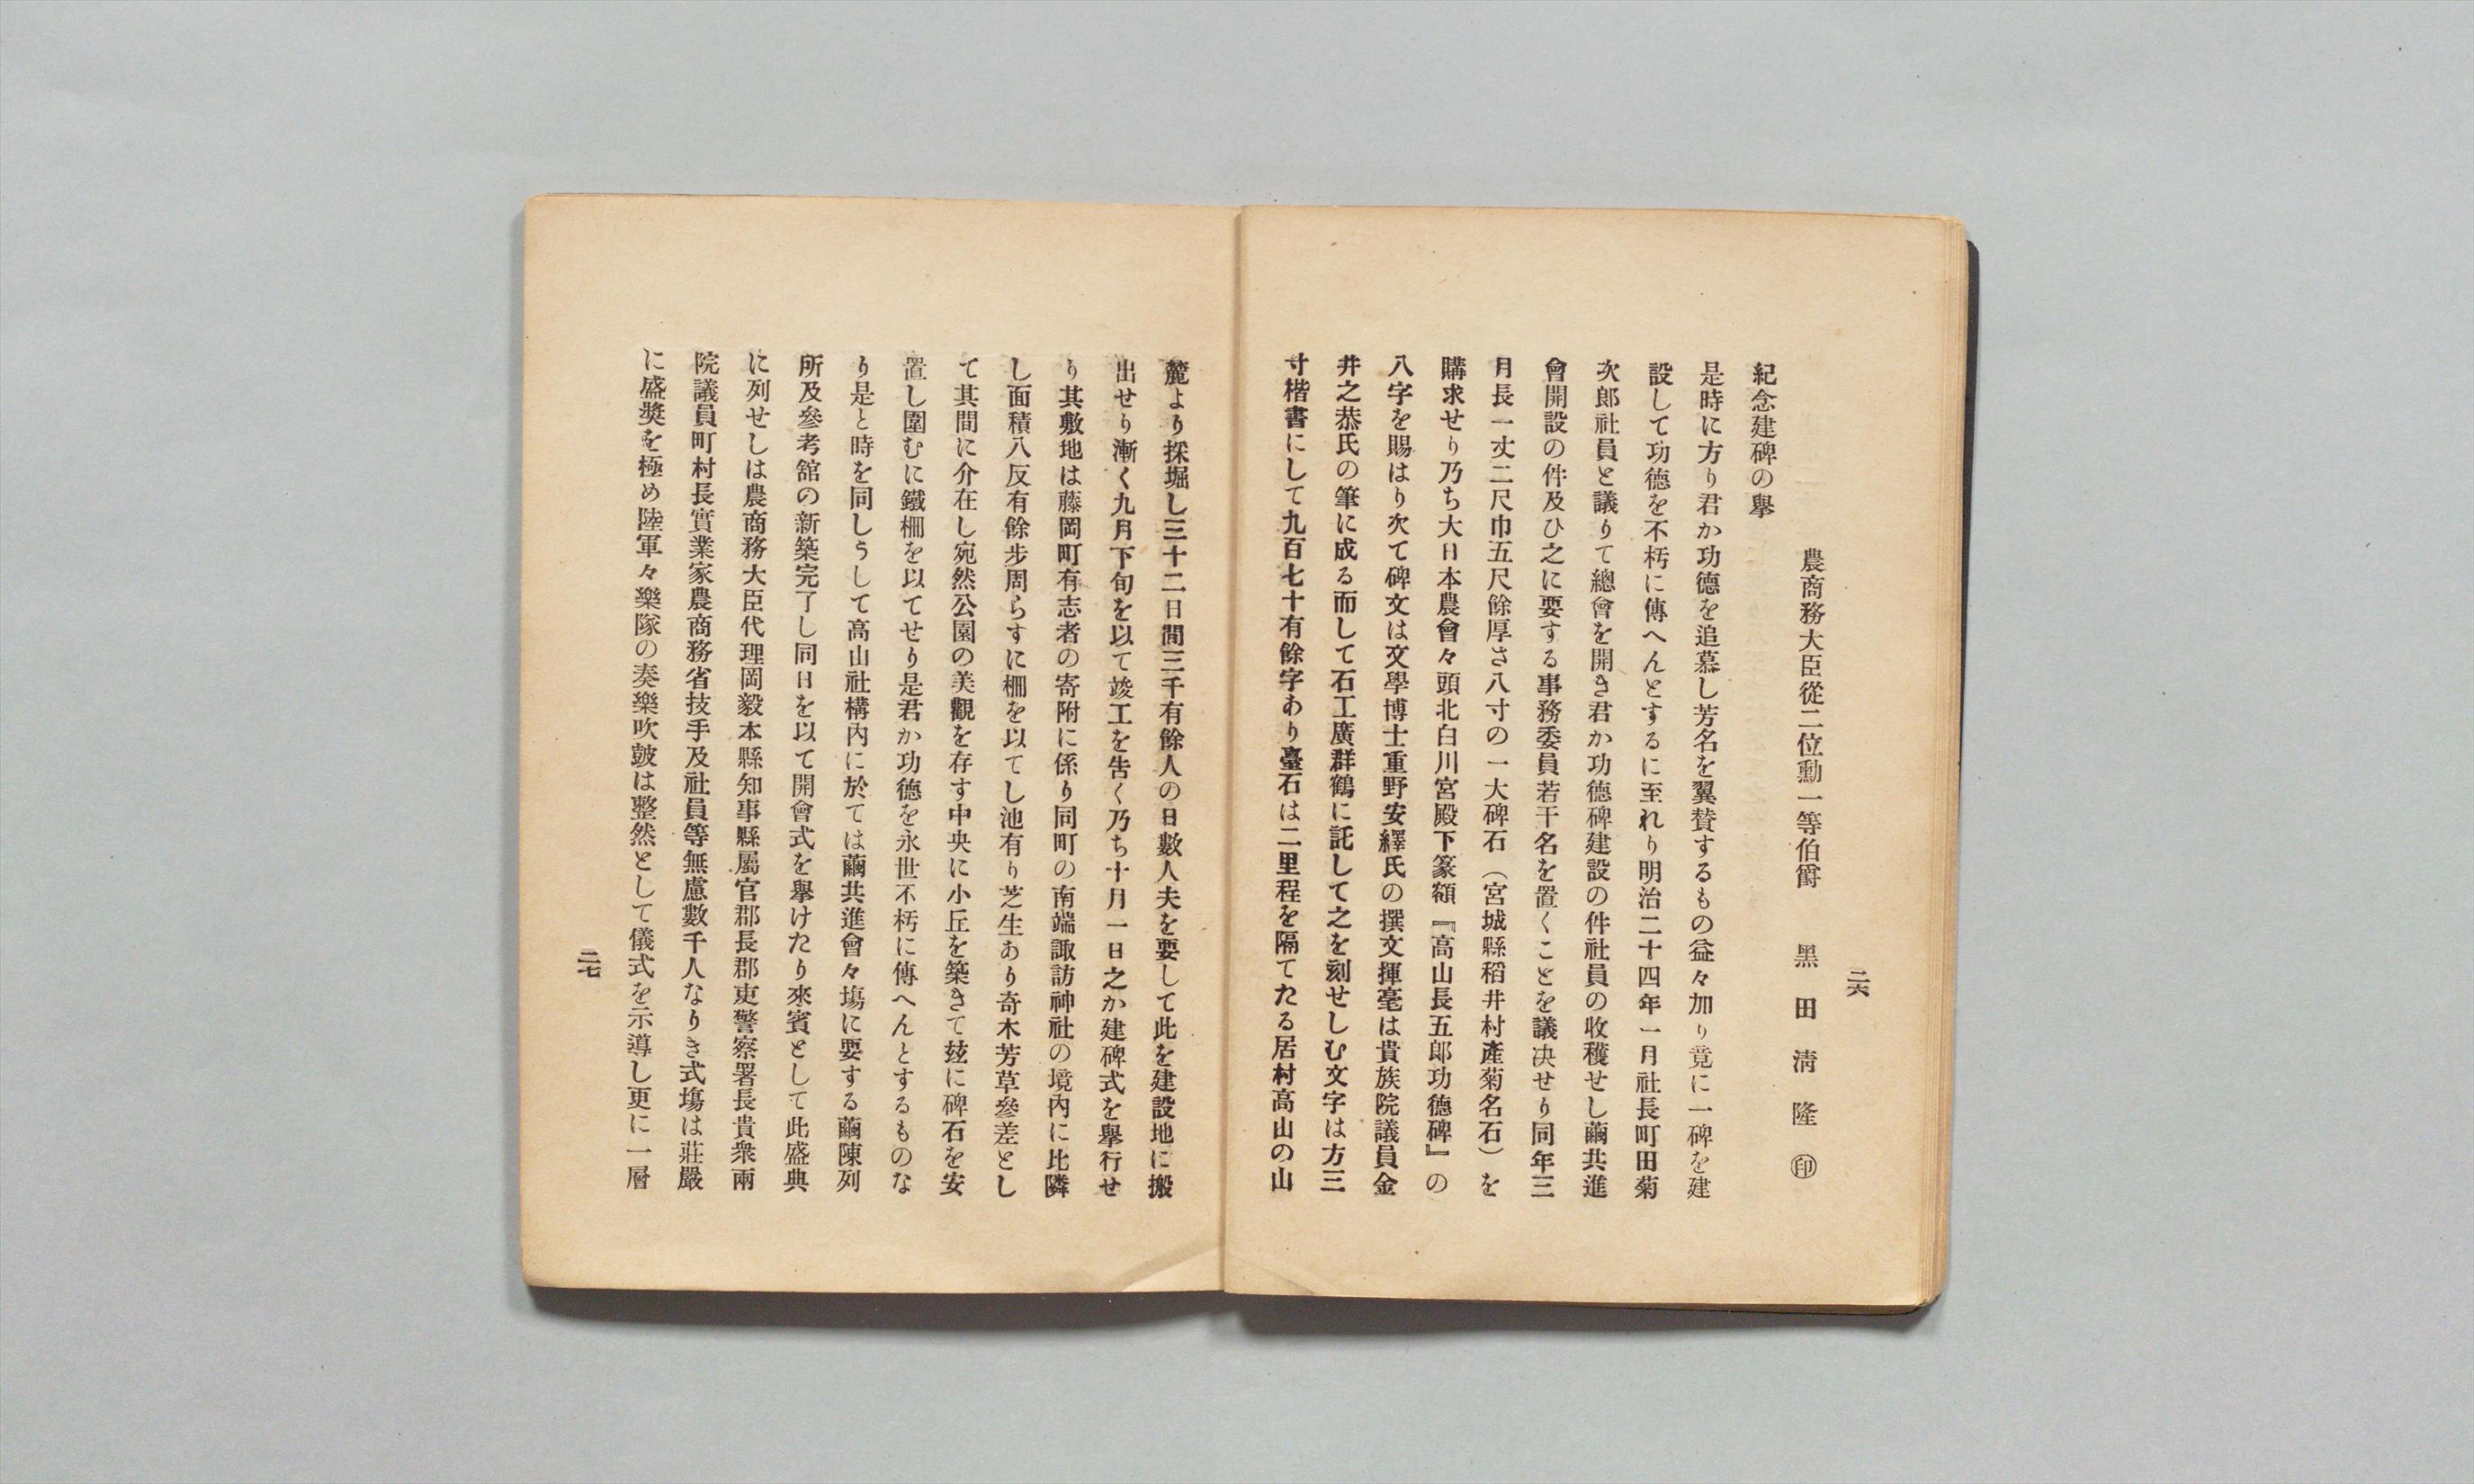 二六
農商務大臣從二位勳一等伯爵　黑田淸隆㊞
紀念建碑の擧
是時に方り君か功德を追慕し芳名を翼賛するもの益々加り竟に一碑を建
設して功德を不朽に傳へんとするに至れり明治二十四年一月社長町田菊
次郎社員と議りて總會を開き君か功德碑建設の件社員の收穫せし繭共進
會開設の件及ひ之に要する事務委員若干名を置くことを議决せり同年三
月長一丈二尺巾五尺餘厚さ八寸の一大碑石（宮城縣稻井村產菊名石）を
購求せり乃ち大日本農會々頭北白川宮殿下篆額『高山長五郞功德碑』の
八字を賜はり次て碑文は文學博士重野安繹氏の撰文揮毫は貴族院議員金
井之恭氏の筆に成る而して石工廣群鶴に託して之を刻せしむ文字は方三
寸楷書にして九百七十有餘字あり臺石は二里程を隔てたる居村高山の山
麓より採堀し三十二日間三千有餘人の日數人夫を要して此を建設地に搬
出せり漸く九月下旬を以て竣工を告く乃ち十月一日之か建碑式を擧行せ
り其敷地は藤岡町有志者の寄附に係り同町の南端諏訪神社の境內に比隣
し面積八反有餘步周らすに柵を以てし池有り芝生あり奇木芳草參差とし
て其間に介在し宛然公園の美觀を存す中央に小丘を築きて玆に碑石を安
置し圍むに鐵柵を以てせり是君か功德を永世不朽に傳へんとするものな
り是と時を同しうして高山社構內に於ては繭共進會々塲に要する繭陳列
所及參考舘の新築完了し同日を以て開會式を擧けたり來賓として此盛典
に列せしは農商務大臣代理岡毅本縣知事縣屬官郡長郡吏警察署長貴衆兩
院議員町村長實業家農商務省技手及社員等無慮數千人なりき式塲は莊嚴
に盛奬を極め陸軍々樂隊の奏樂吹皷は整然として儀式を示導し更に一層
二七